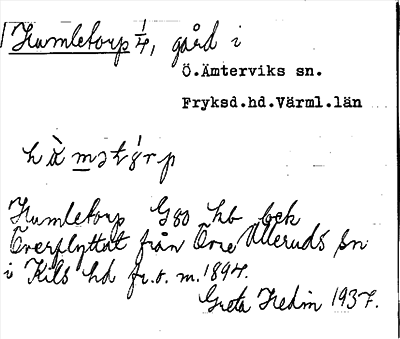 Humletorp 1/4, gård i
Ö.Ämterviks sn.
Fryksd.hd.Värml.län
Humletorp G80 hb bek
Överflyttat från Övre Ulleruds sn
i Kils hd fr.o. m. 1894.
Greta Hedin 1937.